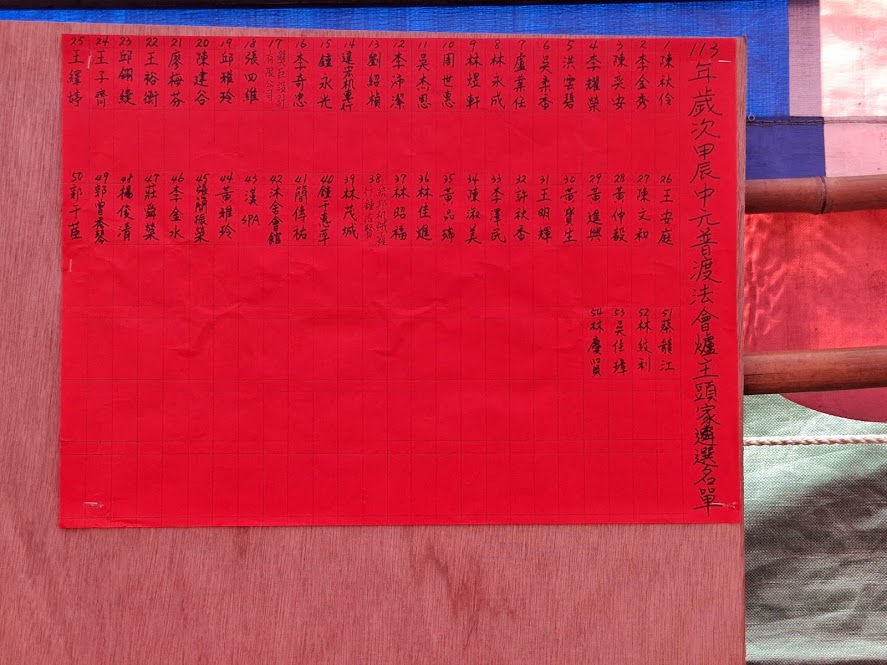 113年歲次甲辰中元普渡法會爐主頭家遴選名單
1 陳秋伶
2 李金秀
3 陳奕安
4 李耀榮
5 洪雲碧
6 吳素香
7 盧業任
8 林永成
9 林煜軒
10 周世惠
11 吳杰恩
12 李沛潔
13 劉紹楨
14 連宋机惠何
15 鍾永光
16 李奇忠
17 設計有限公司
18 張四維
19 邱雅玲
20 陳建谷
21 廖梅芬
22 王裕衡
23 邱翎綾
24 王子齊
25 王繹婷
26 王安庭
27 陳文和
28 黃仲毅
29 黃進興
30 黃寶生
31 王明輝
32 許秋香
33 李澤民
34 陳淑美
35 黃品瑞
36 林佳進
37 林昭福
38
39 林茂城
40 鍾于惠萍
41 簡侼祐
42 沐舍會館
43 漢 SPA
44 黃雅玲
45 張簡振榮
46 李金水
47 莊
48 楊俊清
49 郭曾秀琴
50 郭于荎
51 蔡龍江
52 林紋利
53 吳佳瑋
54 林慶賢